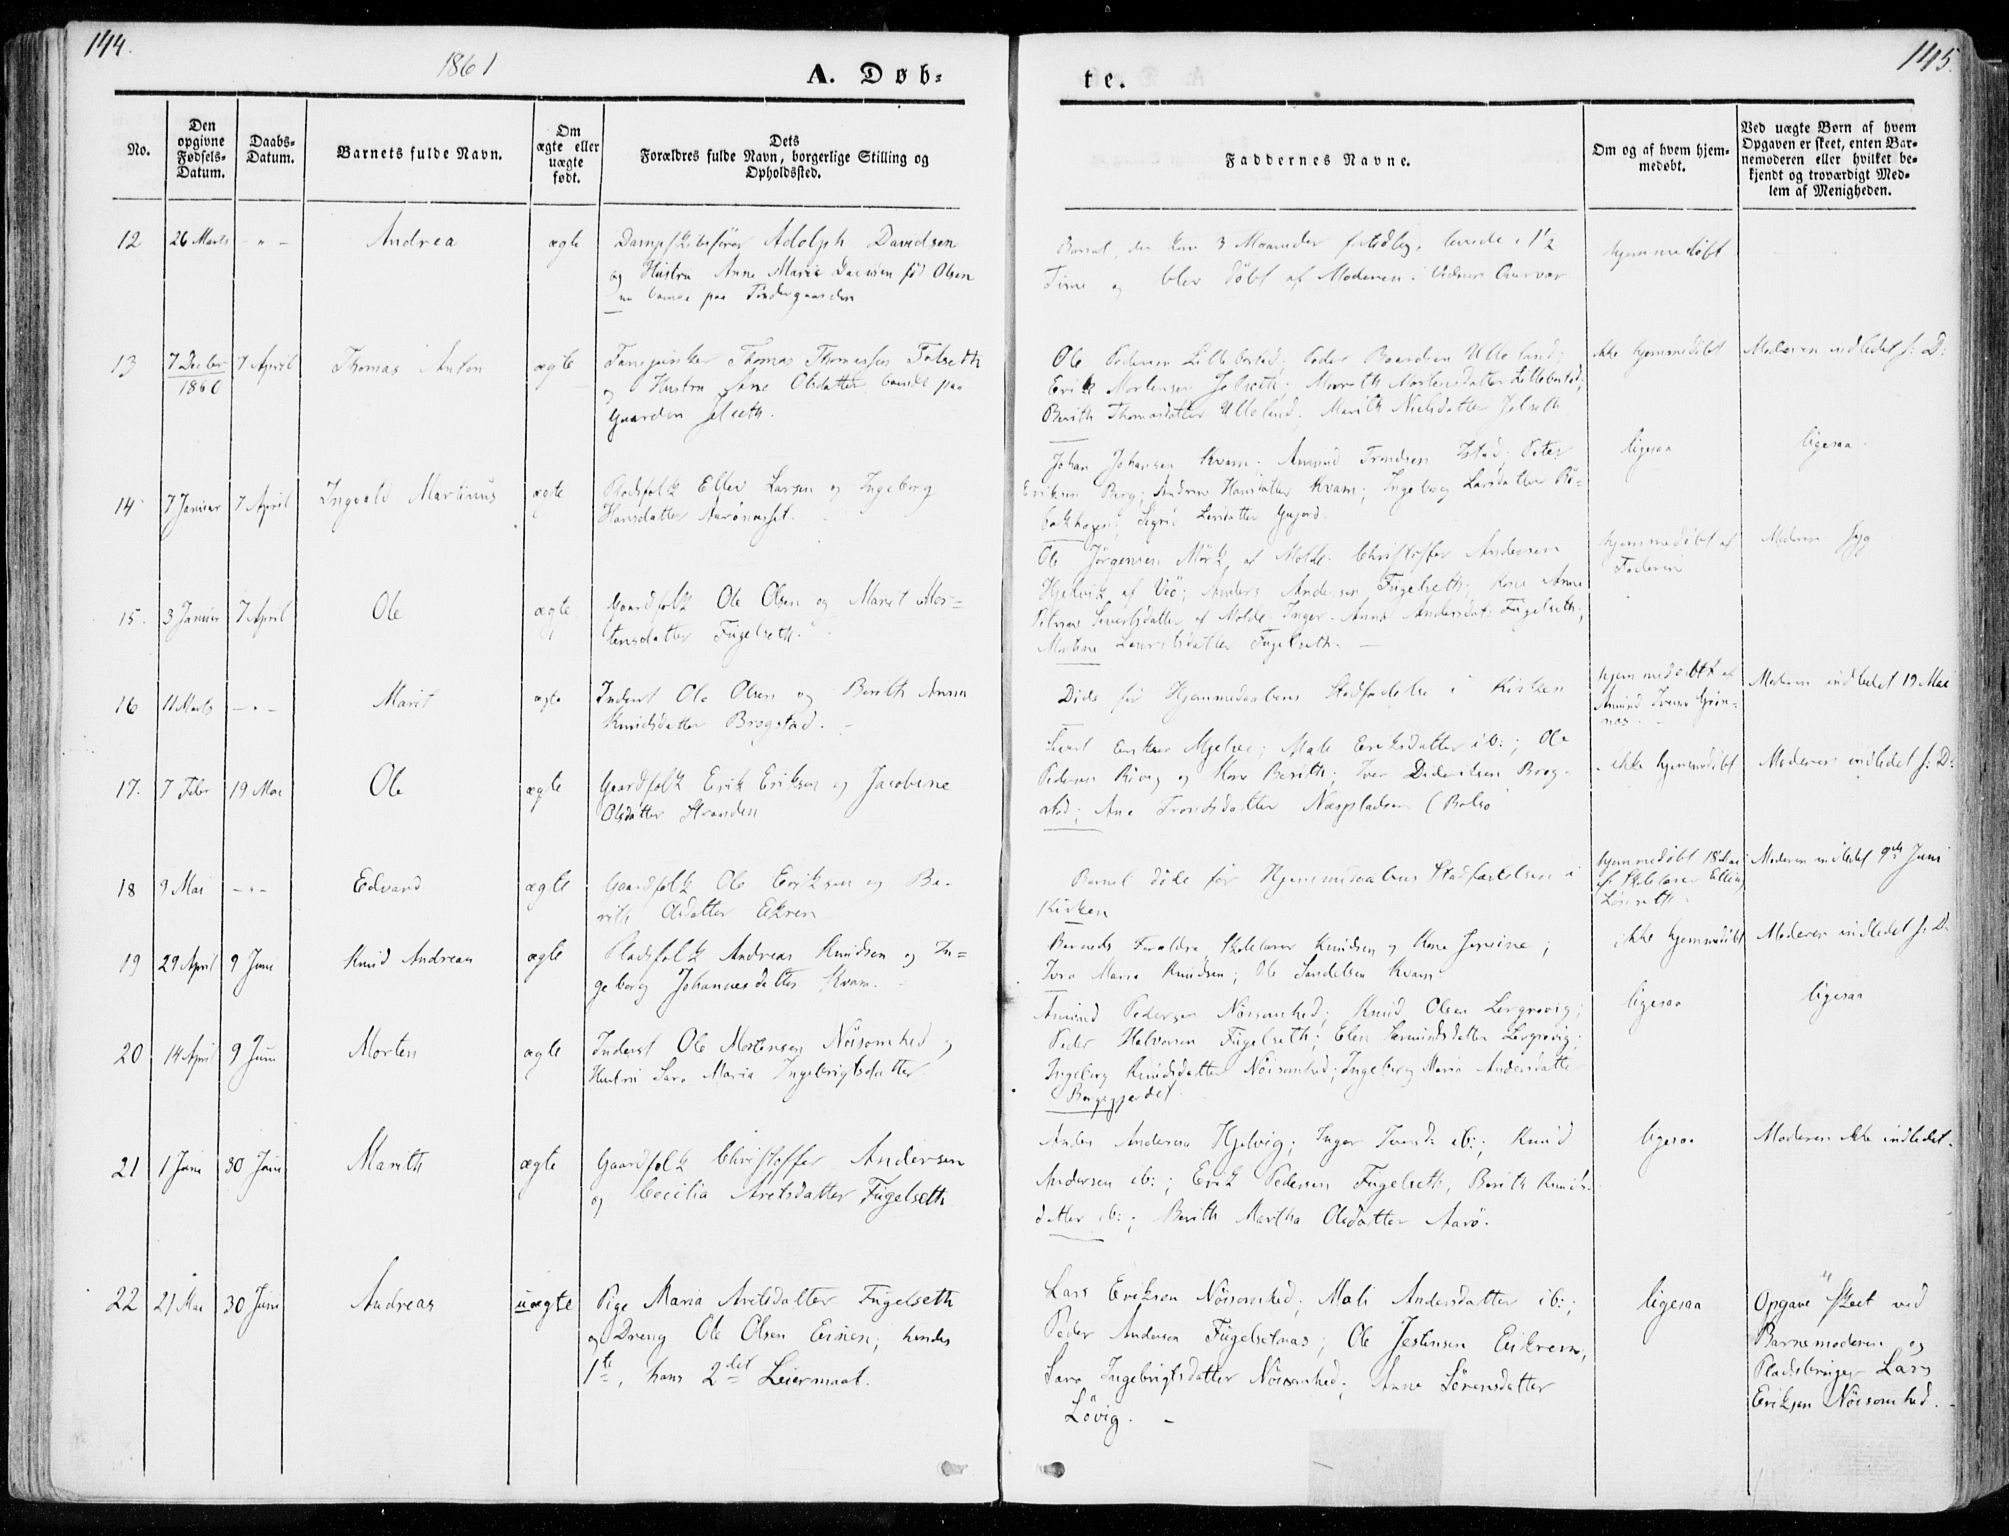 144.
1861
A. Døb-
No.
Den
opgivne
Fødsels-
Datum.
Daabs-
Datum.
Barnets fulde Navn.
Om
ægte eller
uægte
født.
Dets
Forældres fulde Navn, borgerlige Stilling og
Opholdssted.
12
26 Marts
- " -
Andrea
ægte
Dampskibsfører Adolph Davidsen
og Hustru Anne Marie Davidsen fød Olsen
13
7 Decbr
1860
7 April
Thomas Anton
ægte
Thomas Thomassen
og Hustru Ane Olsdatter boende paa
Gaarden Jelseth.
14
7 Januar
7 April
Ingvald Martinus
ægte
Pladsfolk Ellev Larsen og Ingeborg
Hansdatter Aarønæset.
15.
3 Januar
7 April
Ole
ægte
Gaardfolk Ole Olsen og Marit Mor-
tensdatter Fugelseth.
16
11 Marts
- " -
Marit
ægte
Inderst Ole Olsen og Berith Anna
Knudsdatter Brogstad.
17.
7 Febr
19 Mai
Ole
ægte
Gaardfolk Erik Eriksen og Jacobine
Olsdatter Stranden
18
9 Mai
- " -
Edvard
ægte
Gaardfolk Ole Eriksen og Be-
rith Olsdatter Eikrem
19
29 April
9 Juni
Knud Andreas
ægte
Pladsfolk Andreas Knudsen og In-
geborg Johannesdatter Kvam.
20
14 April
9 Juni
Morten
ægte
Inderst Ole Mortensen Nöisomhed og
Hustru Sara Maria Ingebrigtsdatter
21
1 Juni
30 Juni
Marith
ægte
Gaardfolk Christoffer Andersen
og Cecilia Aretsdatter Fugelseth
22
21 Mai
30 Juni
Andreas
uægte
Pige Maria Aretsdatter Fugelseth
og Dreng Ole Olsen; hendes
1te, hans 2det Leiermaal.
145.
te.
Faddernes Navne.
Om og af hvem hjem-
medøbt.
Ved uægte Børn af hvem
Opgaven er skeet, enten Bar-
nemoderen eller hvilket be-
kjendt og troværdigt Med-
lem af Menigheden.
Barnet, der kom 3 Maaneder for tidlig, levede i 1/2
Time og blev døbt af Moderen
hjemmedöbt
Ole Pedersen Lillebostad; Peder Baardsen Ulleland;
Erik Mortensen Jelseth; Marith Mortensdatter Lillebostad;
Berith Thomasdatter Ulleland; Marith Nielsdatter Jelseth
ikke hjemmedöbt
Moderen indledet s: D:
Johan Johansen Kvam; Amund Trondsen Istad; Peter
Eriksen Berg; Andrea Hansdatter Kvam; Ingeborg Larsdatter
Sigrid
ligesaa
ligesaa
Ole Jørgensen Mörk af Molde. Christoffer Andersen
Hjelvik af Veö; Anders Andersen Fugelseth; Kone Anne
Sivertsdatter af Molde. Inger Anna Andersdat: Fugelseth;
Fugelseth.
hjemmedöbt af
Faderen
Moderen syg
Döde för Hjemmedaabens Stadfæstelse i Kirken
hjemmedöbt af
Amund Iversen
Moderen indledet 19 Mai
Sivert Eriksen Mjelve; Mali Eriksdatter ib:; Ole
Pedersen Rövig og Kone Berith; Iver Didriksen Brog-
stad; Ane Trondsdatter Næspladsen (Bolsö
ikke hjemmedöbt
Moderen indledet s: D:
Barnet döde för Hjemmedaabens Stadfæstelse i
Kirken
hjemmedöbt 18 Mai
af Skolelærer Elling
Moderen indledet 9de Juni
Barnets Forældre. Skolelærer Knudsen og Kone;
Maria Knudsen; Ole Sandelsen Kvam
ikke hjemmedöbt
Moderen indledet s: D:
Amund Pedersen Nöisomhed; Knud Olsen Lergrovig;
Peder Halvorsen Fugelseth; Elen Lergrovig;
Ingeborg Knudsdatter Nöisomhed; Ingeborg Maria Andersdatter
Borgegjerdet
ligesaa
ligesaa
Anders Andersen Hjelvig; Inger ib:; Knud
Andersen ib:; Erik Pedersen Fugelseth, Berith Knuds-
datter ib:; Berith Martha Olsdatter Aarö.
ligesaa
Moderen ikke indledet.
Lars Eriksen Nöisomhed; Mali Andersdatter ib:;
Peder Andersen Fugelsetnæs, Ole Jestensen Eikrem,
Sara Ingebrigtsdatter Nöisomhed; Anne Sörensdatter
Lövig.
ligesaa
Opgave skeet ved
Barnemoderen og
Pladsbruger Lars
Eriksen Nöisomhed.